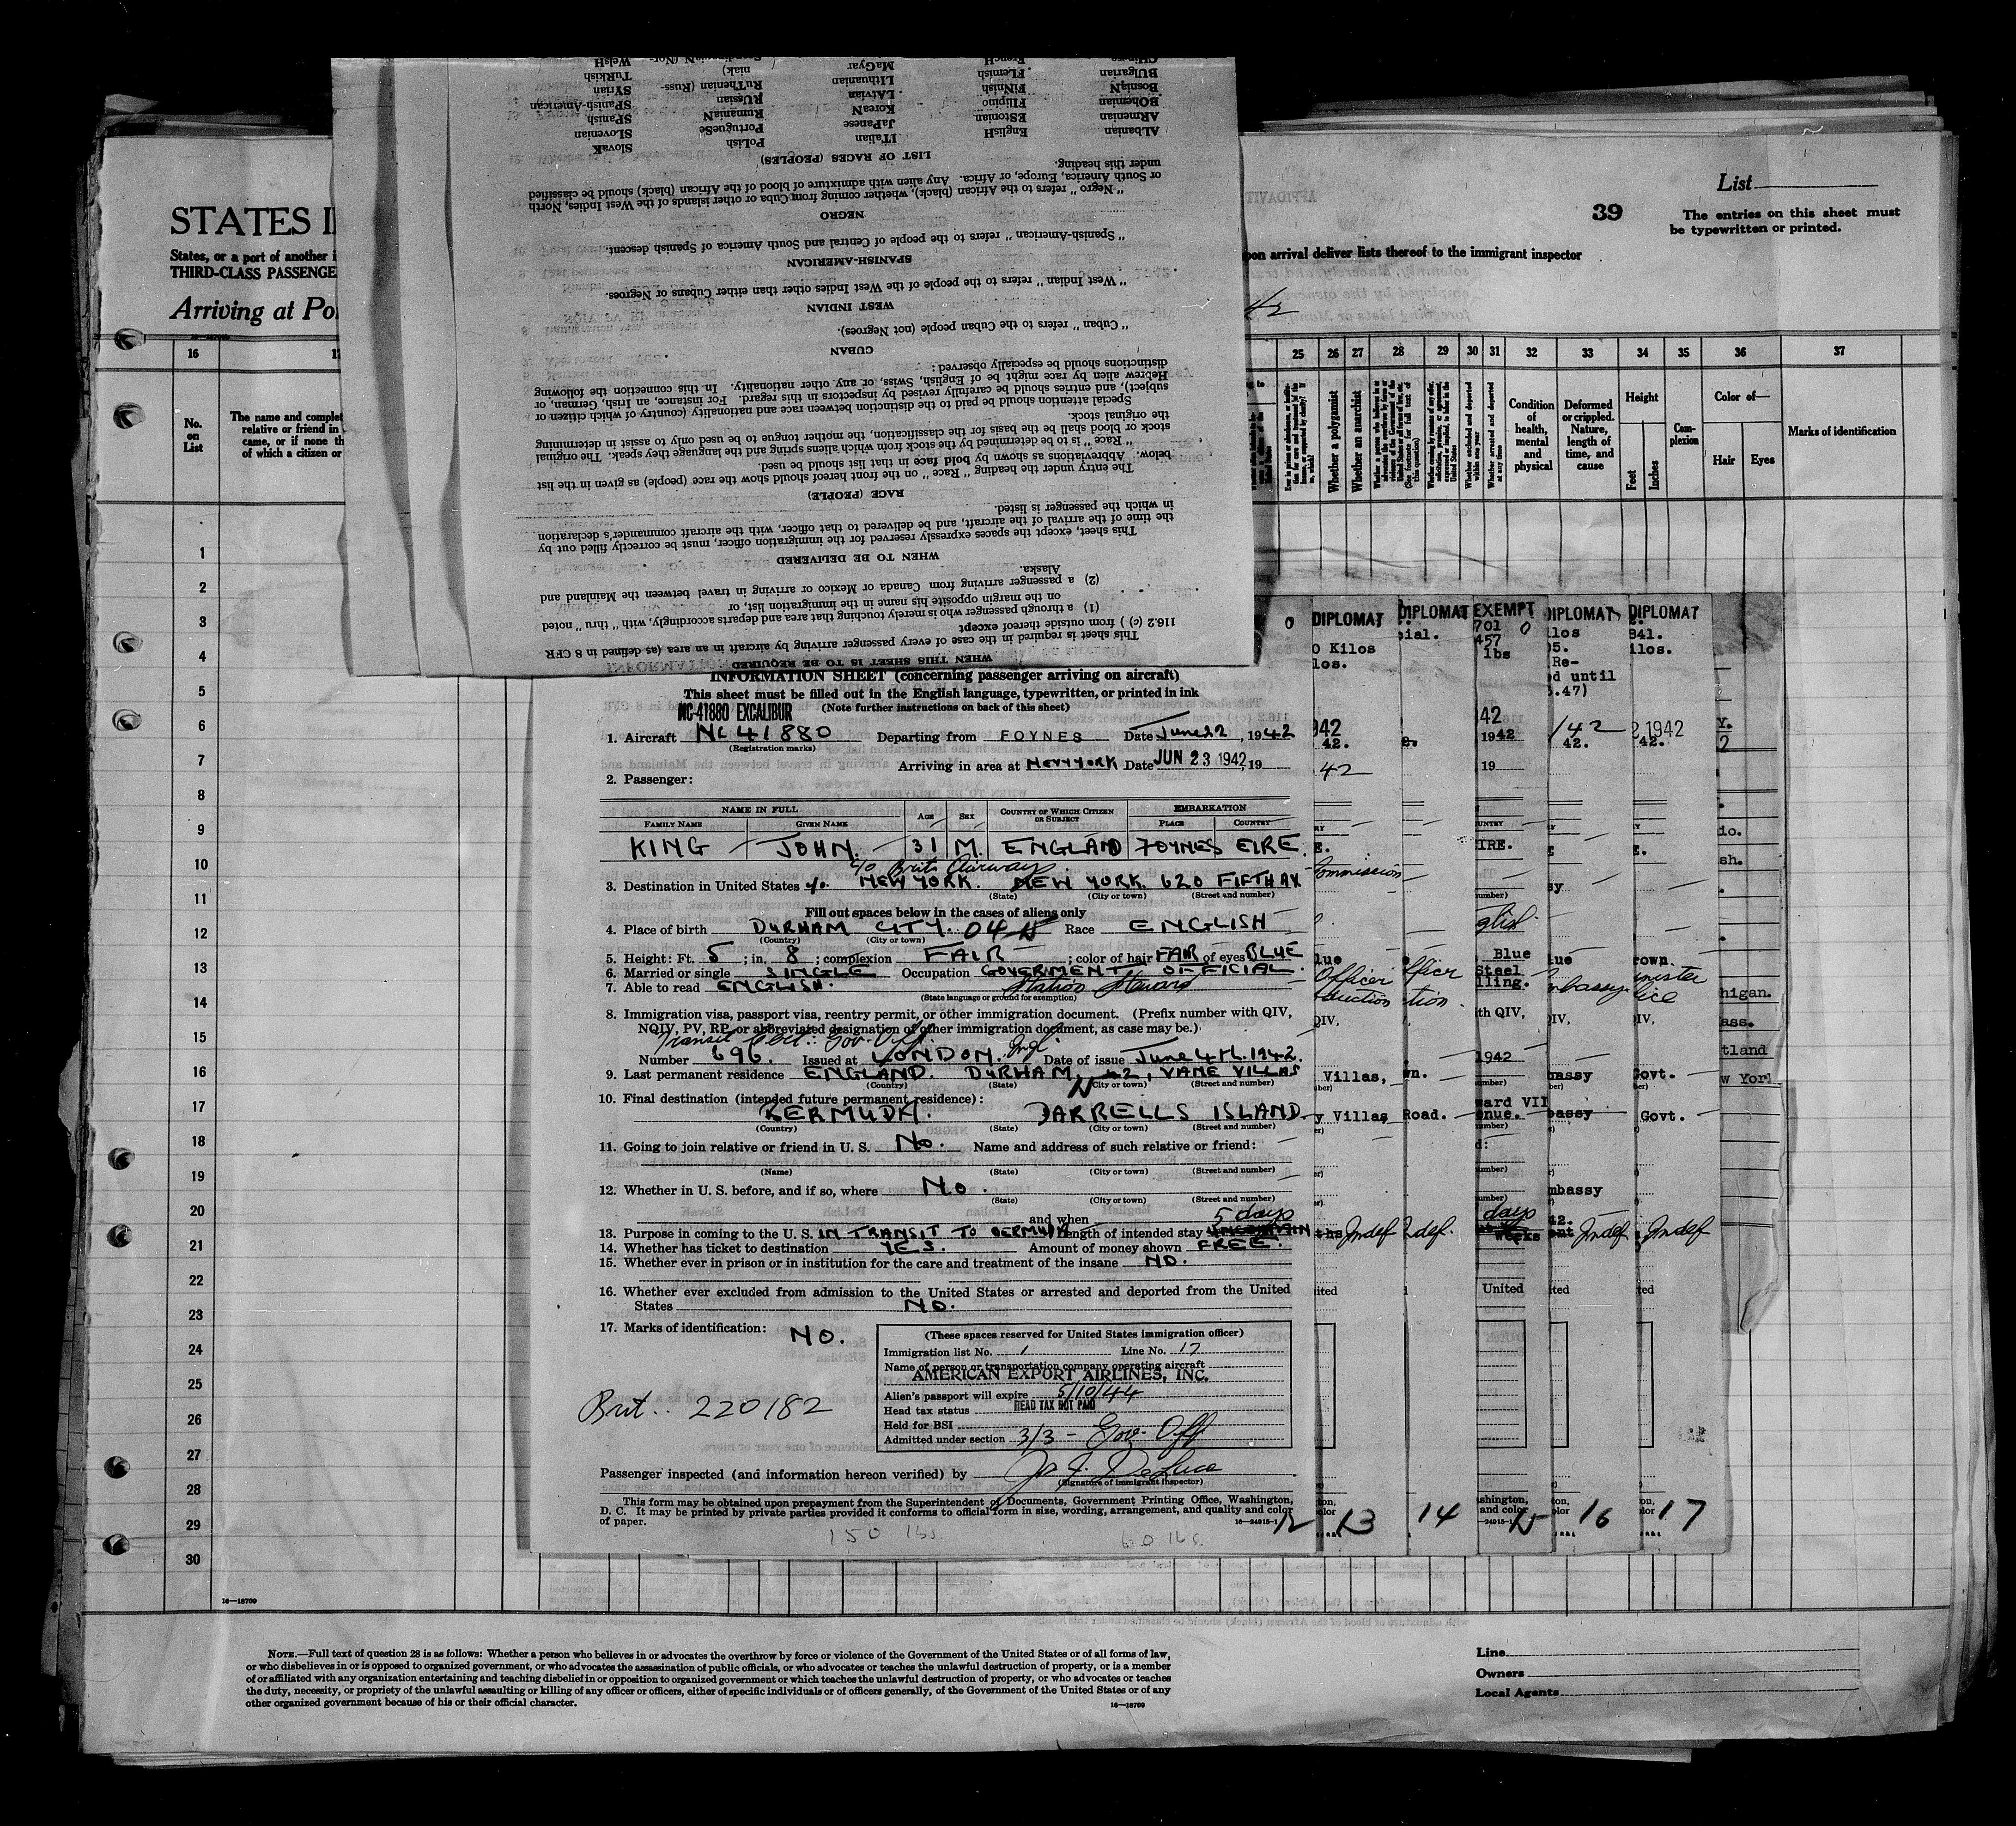 STATES I
States, or a port of another i
THIRD-CLASS PASSENGE
Arriving at Po
List
39
The entries on this sheet must
be typewritten or printed.
pon arrival deliver lists thereof to the immigrant inspector
16
No.
on
List
The name and complet
relative or friend in
came, or if none th
of which a citizen or
25 26 27 28 29 30 31 32 33 34 35 36 37
Whether a polygamist
Whether an anarchist
Condition
of
health,
mental
and
physical
Deformed
or crippled.
Nature,
length of
time, and
cause
Height
Feet
Inches
Com-
plexion
Color of—
Hair
Eyes
Marks of identification
1
2
3
4
5
6
7
8
9
10
11
12
13
14
15
16
17
18
19
20
21
22
23
24
25
26
27
28
29
30
WHEN THIS SHEET IS TO BE REQUIRED
This sheet is required in the case of every passenger arriving by aircraft in an area (as defined in 8 CFR
116.2 (c) ) from outside thereof except
(1) a through passenger who is merely touching that area and departs accordingly, with "thru" noted
on the margin opposite his name in the immigration list, or
(2) a passenger arriving from Canada or Mexico or arriving in travel between the Mainland and
Alaska.
WHEN TO BE DELIVERED
This sheet, except the spaces expressly reserved for the immigration officer, must be correctly filled out by
the time of the arrival of the aircraft, and be delivered to that officer, with the aircraft commander's declaration
in which the passenger is listed.
RACE (PEOPLE)
The entry under the heading "Race" on the front hereof should show the race (people) as given in the list
below. Abbreviations as shown by bold face in that list should be used.
"Race" is to be determined by the stock from which aliens spring and the language they speak. The original
stock or blood shall be the basis for the classification, the mother tongue to be used only to assist in determining
the original stock.
Special attention should be paid to the distinction between race and nationality (country of which citizen or
subject), and entries should be carefully revised by inspectors in this regard. For instance, an Irish, German, or
Hebrew alien by race might be of English, Swiss, or any other nationality. In this connection the following
distinctions should be especially observed:
CUBAN
"Cuban" refers to the Cuban people (not Negroes).
WEST INDIAN
"West Indian" refers to the people of the West Indies other than either Cubans or Negroes.
SPANISH-AMERICAN
"Spanish-American" refers to the people of Central and South America of Spanish descent.
NEGRO
"Negro" refers to the African (black), whether coming from Cuba or other islands of the West Indies, North
or South America, Europe, or Africa. Any alien with admixture of blood of the African (black) should be classified
under this heading.
LIST OF RACES (PEOPLES)
ALbanian EnglisH ITalian PoLish SlovaK
ARmenian EStonian JaPanese PortuguеSe SLovenian
BOhemian FIlipino KoreaN RumaniaN SPanisH
BosniaN FiNnish LAtvian RUssian SPanish-American
BUlgarian FLemish LIthuanian RuThenian (Russ- SYrian
CHinese FrencH MaGyar niak) TuRkish
WelsH
INFORMATION SHEET (concerning passenger arriving on aircraft)
This sheet must be filled out in the English language, typewritten, or printed in ink
NC-41880 EXCALIBUR (Note further instructions on back of this sheet)
1. Aircraft NC 41880 Departing from FOYNES Date June 22, 1942
(Registration marks)
Arriving in area at NEW YORK Date JUN 23 1942, 19
2. Passenger:
NAME IN FULL AGE SEX COUNTRY OF WHICH CITIZEN OR SUBJECT EMBARKATION
FAMILY NAME GIVEN NAME PLACE COUNTRY
KING JOHN. 31 M. ENGLAND FOYNES EIRE.
c/o Brits Airways
3. Destination in United States c/o. NEW YORK. NEW YORK. 620 FIFTH AV
(State) (City or town) (Street and number)
Fill out spaces below in the cases of aliens only
4. Place of birth DURHAM CITY. 04 Race ENGLISH
(Country) (City or town)
5. Height: Ft. 5; in. 8; complexion FAIR; color of hair FAIR of eyes BLUE
6. Married or single SINGLE Occupation GOVERMENT OFFICIAL.
7. Able to read ENGLISH. Station Steward
(State language or ground for exemption)
8. Immigration visa, passport visa, reentry permit, or other immigration document. (Prefix number with QIV,
NQIV, PV, RP, or abbreviated designation of other immigration document, as case may be.)
Transit Cert.: Gov. Off.
Number 696. Issued at LONDON. Engl. Date of issue June 4th. 1942.
9. Last permanent residence ENGLAND. DURHAM, 42, VANE VILLAS
(Country) (State) (City or town) (Street and number)
10. Final destination (intended future permanent residence):
BERMUDA. DARRELLS ISLAND
(Country) (State) (City or town) (Street and number)
11. Going to join relative or friend in U. S. No. Name and address of such relative or friend:
(Name) (State) (City or town) (Street and number)
12. Whether in U. S. before, and if so, where No.
(State) (City or town) (Street and number)
and when 5 days
13. Purpose in coming to the U. S. IN TRANSIT TO BERMUDA Length of intended stay
14. Whether has ticket to destination YES. Amount of money shown FREE.
15. Whether ever in prison or in institution for the care and treatment of the insane NO.
16. Whether ever excluded from admission to the United States or arrested and deported from the United
States NO.
17. Marks of identification: NO.
(These spaces reserved for United States immigration officer)
Immigration list No. 1 Line No. 17
Name of person or transportation company operating aircraft
AMERICAN EXPORT AIRLINES, INC.
Alien's passport will expire 5/10/44
Head tax status HEAD TAX NOT PAID
Held for BSI
Admitted under section 3/3 - Gov. Off
Brit.. 220182
Passenger inspected (and information hereon verified) by
(Signature of immigrant inspector)
This form may be obtained upon prepayment from the Superintendent of Documents, Government Printing Office, Washington,
D. C. It may be printed by private parties provided it conforms to official form in size, wording, arrangement, and quality and color
of paper. 16—24915-1
150 lbs. 60 lbs.
12 13 14 15 16 17
DIPLOMAT DIPLOMAT EXEMPT DIPLOMAT DIPLOMAT
16—18709
NOTE.—Full text of question 28 is as follows: Whether a person who believes in or advocates the overthrow by force or violence of the Government of the United States or of all forms of law,
or who disbelieves in or is opposed to organized government, or who advocates the assassination of public officials, or who advocates or teaches the unlawful destruction of property, or is a member
of or affiliated with any organization entertaining and teaching disbelief in or opposition to organized government or which teaches the unlawful destruction of property, or who advocates or teaches
the duty, necessity, or propriety of the unlawful assaulting or killing of any officer or officers, either of specific individuals or of officers generally, of the Government of the United States or of any
other organized government because of his or their official character.
16—18709
Line
Owners
Local Agents